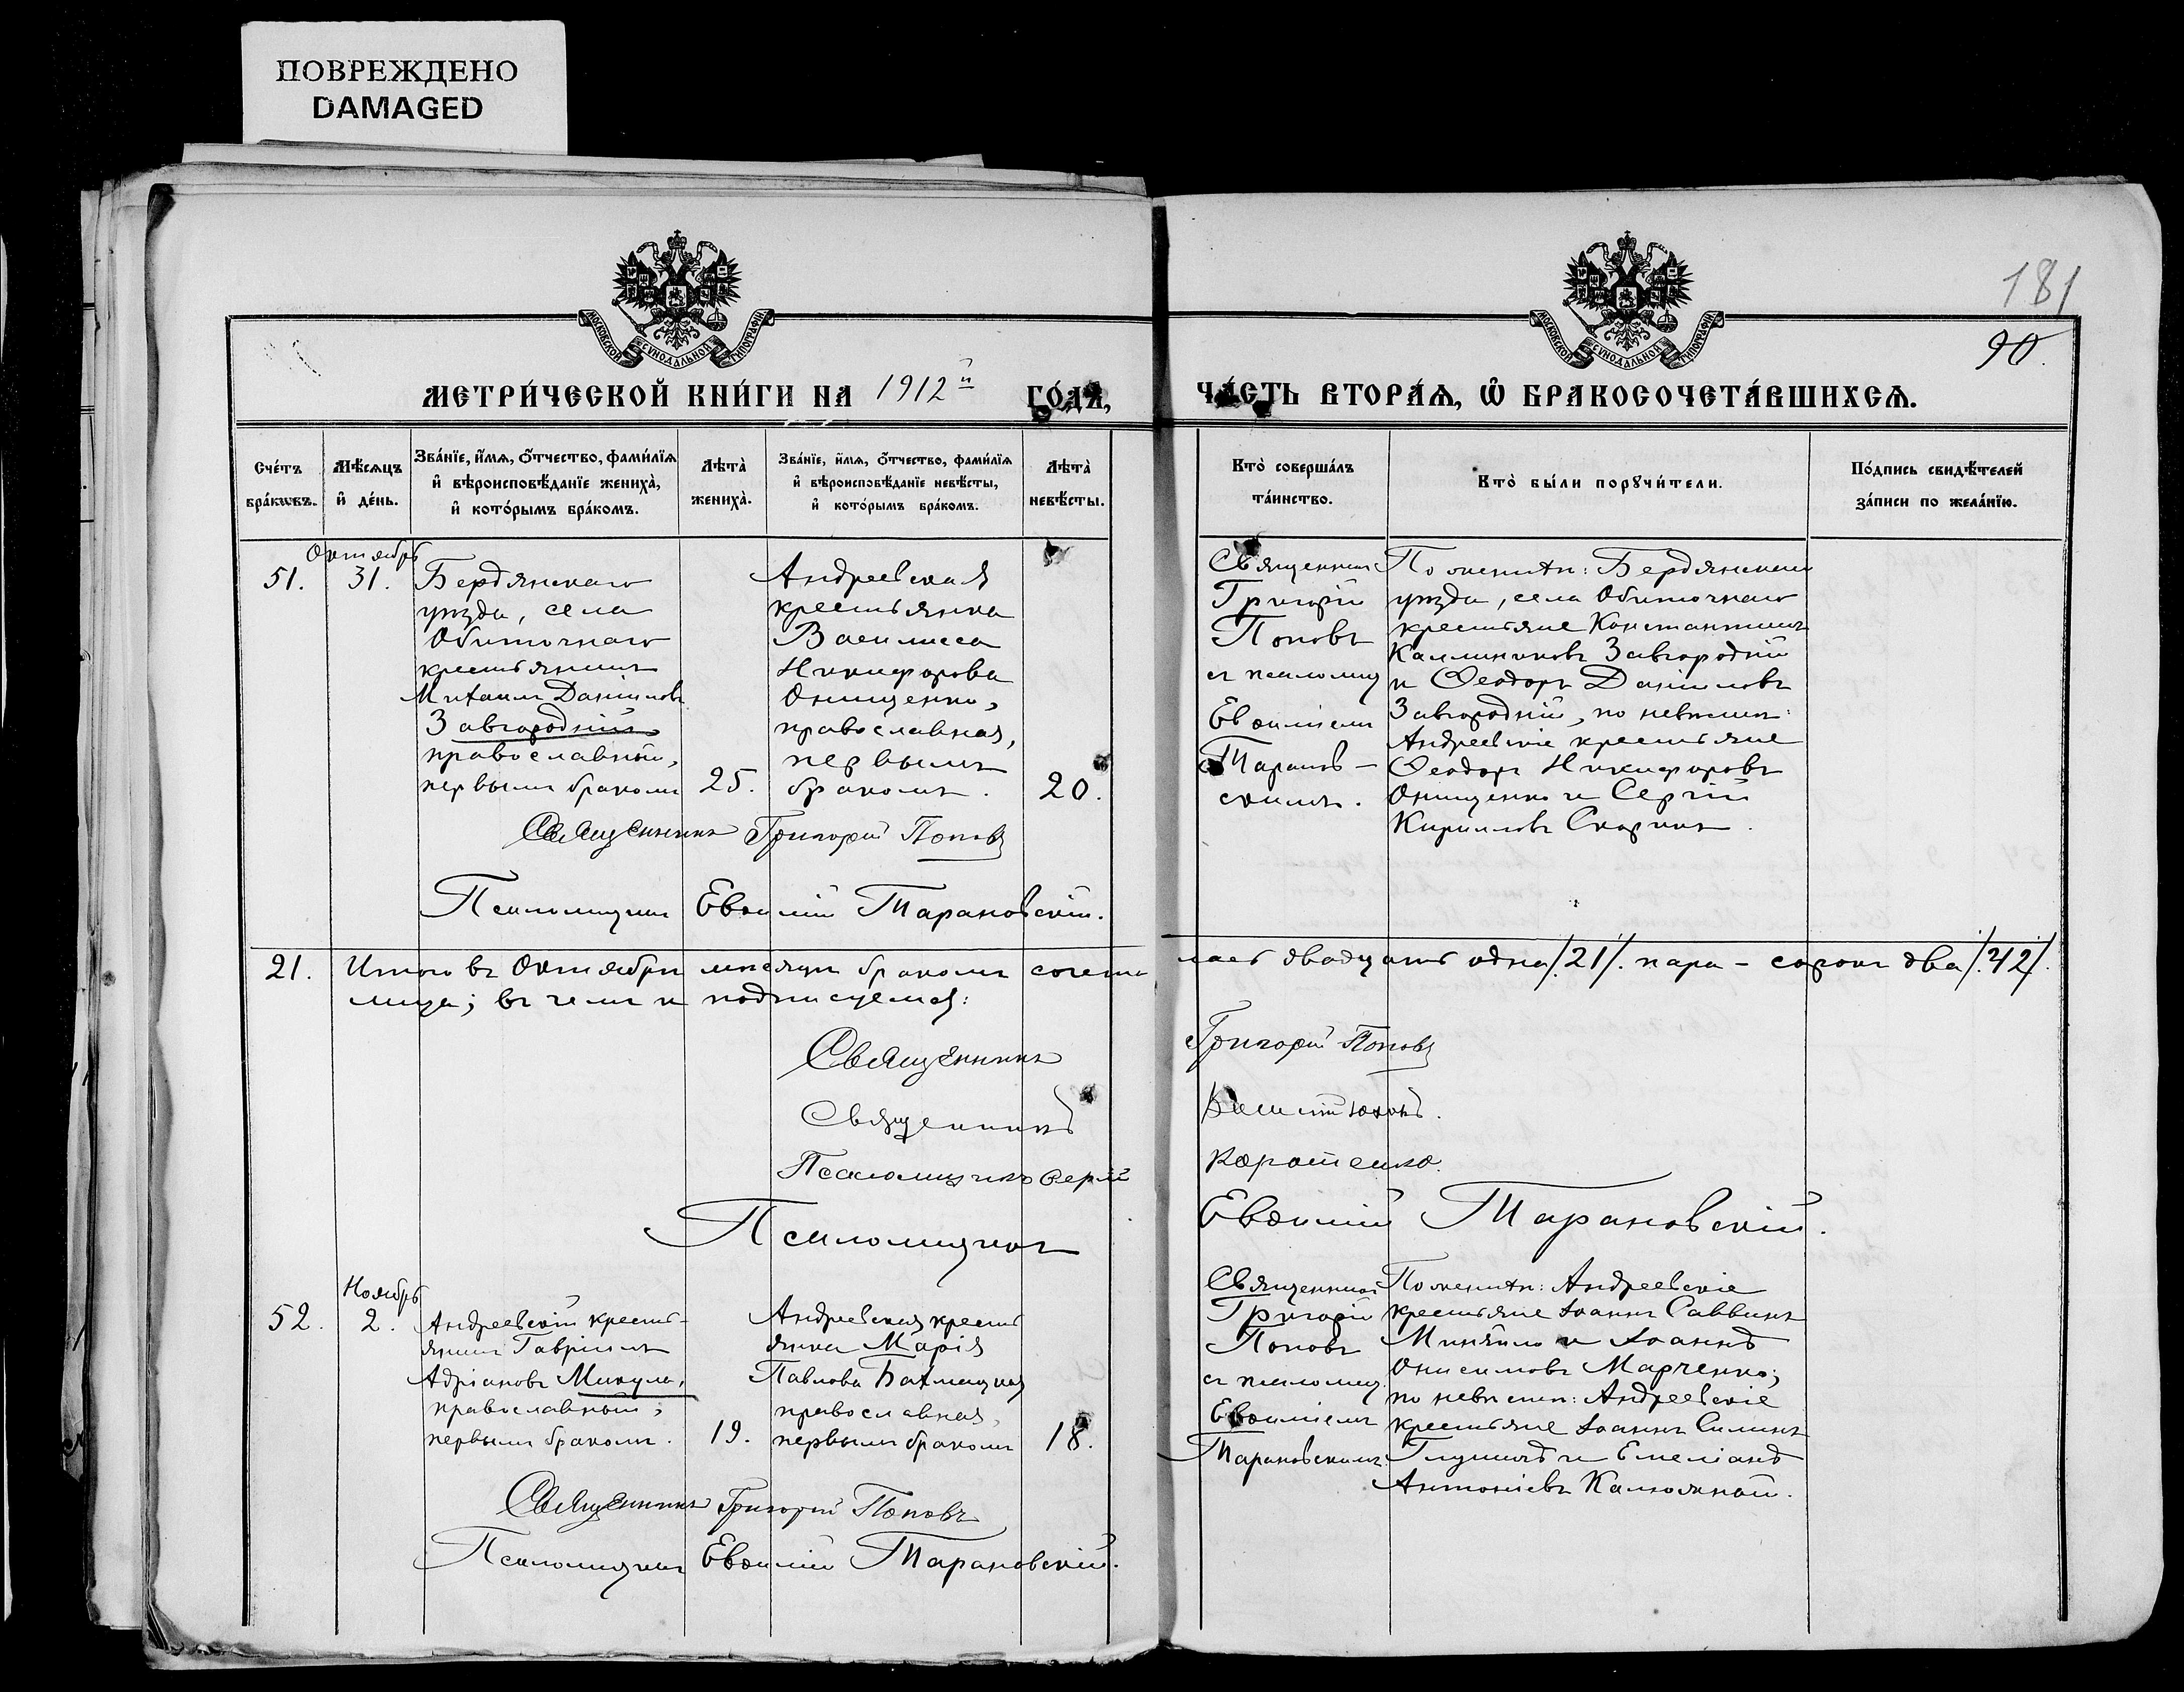 ПОВРЕЖДЕНО
DAMAGED
МОСКОВСКОЙ СУНОДАЛЬНОЙ ТИПОГРАФІИ
МОСКОВСКОЙ СУНОДАЛЬНОЙ ТИПОГРАФІИ
181
90.
МЕТРИ́ЧЕСКОЙ КНИ́ГИ НА 1912й ГО́ДЪ,
ЧА́СТЬ ВТОРА́Ѧ, Ѽ БРАКОСОЧЕТА́ВШИХСѦ.
Сче́тъ
бра́кѡвъ.
Мѣ́сѧцъ
и҆ де́нь.
Зва́нїе, и҆́мѧ, ѻ҆́тчество, фами́лїѧ
и҆ вѣроисповѣ́данїе жениха̀,
и҆ кото́рымъ бра́комъ.
Лѣ́та̀
жениха̀.
Зва́нїе, и҆́мѧ, ѻ҆́тчество, фами́лїѧ
и҆ вѣроисповѣ́данїе невѣ́сты,
и҆ кото́рымъ бра́комъ.
Лѣ́та̀
невѣ́сты.
Кто̀ соверша́лъ
та́инство.
Кто̀ бы́ли порꙋчи́тели.
По́дпись свидѣ́телей
за́писи по жела́нїю.
Октябрь
51. 31.
Бердянскаго
уѣзда, села
Обиточнаго
крестьянинъ
Михаилъ Даніиловъ
Завгородній
православный,
первымъ бракомъ
25.
Андреевская
крестьянка
Василисса
Никифорова
Онищенко,
православная,
первымъ
бракомъ.
20.
Священникъ
Григорій
Поповъ
съ псаломщ
Евѳиміемъ
Таранов-
скимъ.
По женихѣ: Бердянскаго
уѣзда, села Обиточнаго
крестьяне Константинъ
Каллиниковъ Завгородній
и Ѳеодоръ Даніиловъ
Завгородній, по невѣстѣ:
Андреевскіе крестьяне
Ѳеодоръ Никифоровъ
Онищенко и Сергій
Кирилловъ
Священникъ Григорій Поповъ
Псаломщикъ Евѳимій Тарановскій.
21. Итого въ Октябрѣ мѣсяцѣ бракомъ сочета
лась двадцать одна /21/. пара - сорокъ два /42/.
лица; въ чемъ и подписуемся:
Священникъ Григорій Поповъ
Священникъ
Псаломщикъ Сергій Коротенко.
Псаломщикъ Евѳимій Тарановскій.
Ноябрь
52. 2.
Андреевскій кресть-
янинъ Гавріилъ
Адріановъ Микула,
православный,
первымъ бракомъ.
19.
Андреевская кресть
янка Марія
Павлова Бахмацкая
православная,
первымъ бракомъ
18.
Священникъ
Григорій
Поповъ
съ псаломщ.
Евѳиміемъ
Тарановскимъ.
По женихѣ: Андреевскіе
крестьяне Іоаннъ Саввинъ
Миняйло и Іоаннъ
Онисимовъ Марченко;
по невѣстѣ: Андреевскіе
крестьяне Іоаннъ Силинъ
и Емеліанъ
Антоніевъ
Священникъ Григорій Поповъ
Псаломщикъ Евѳимій Тарановскій.